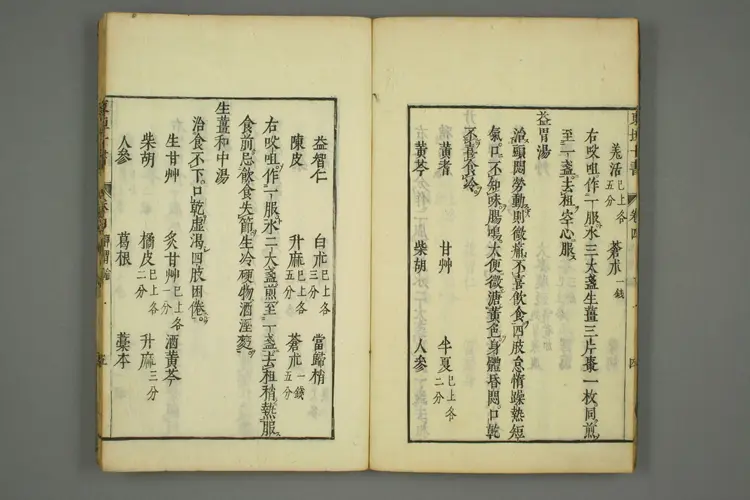 東垣十書
卷四
羌活已上各五分 蒼朮一錢
右㕮咀作一服水三大盞生薑三片棗一枚同煎
至一盞去柤空心服
益胃湯
治頭悶勞動則微痛不喜飲食四肢怠惰躁熱短
氣口不知味腸鳴大便微溏黃色身體昏悶口乾
不喜食冷
黃耆 甘艸 半夏已上各二分
黃芩 柴胡 人參
益智仁 白朮已上各三分 當歸梢
陳皮 升麻已上各五分 蒼朮一錢五分
右㕮咀作一服水二大盞煎至一盞去柤稍熱服
食前忌飲食失節生冷硬物酒溼麪
生薑和中湯
治食不下口乾虛渴四肢困倦
生甘艸 炙甘艸已上各一分 酒黃芩
柴胡 橘皮已上各二分 升麻三分
人參 葛根 藁本
東垣十書